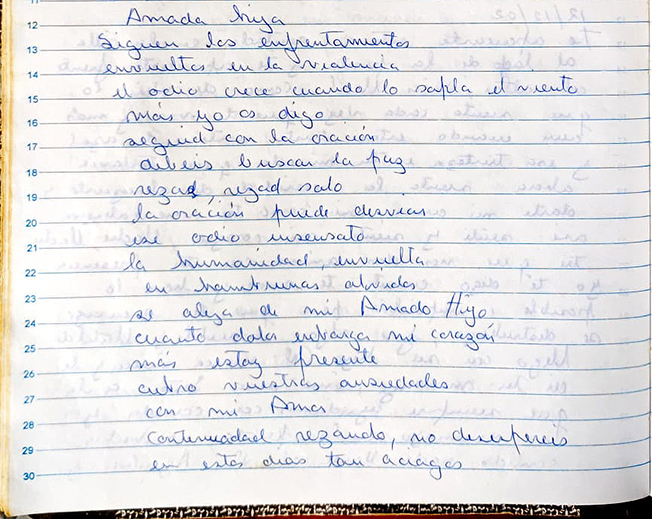 Amada hija
Siguen los enfrentamientos
envueltos en la violencia
el odio crece cuando lo sopla el viento
más yo os digo
seguid con la oración
debeis buscar la paz
rezad, rezad solo
la oración puede desviar
ese odio insensato
la humanidad, envuelta
en hambrunas
se aleja de mi Amado Hijo
cuanto dolor embarga mi corazón
más estoy presente
cubro vuestras ansiedades
con mi Amor
continuidad rezando, no desespereis
en estos dias tan aciagos
12
13
14
15
16
17
18
19
20
21
22
23
24
25
26
27
28
29
30